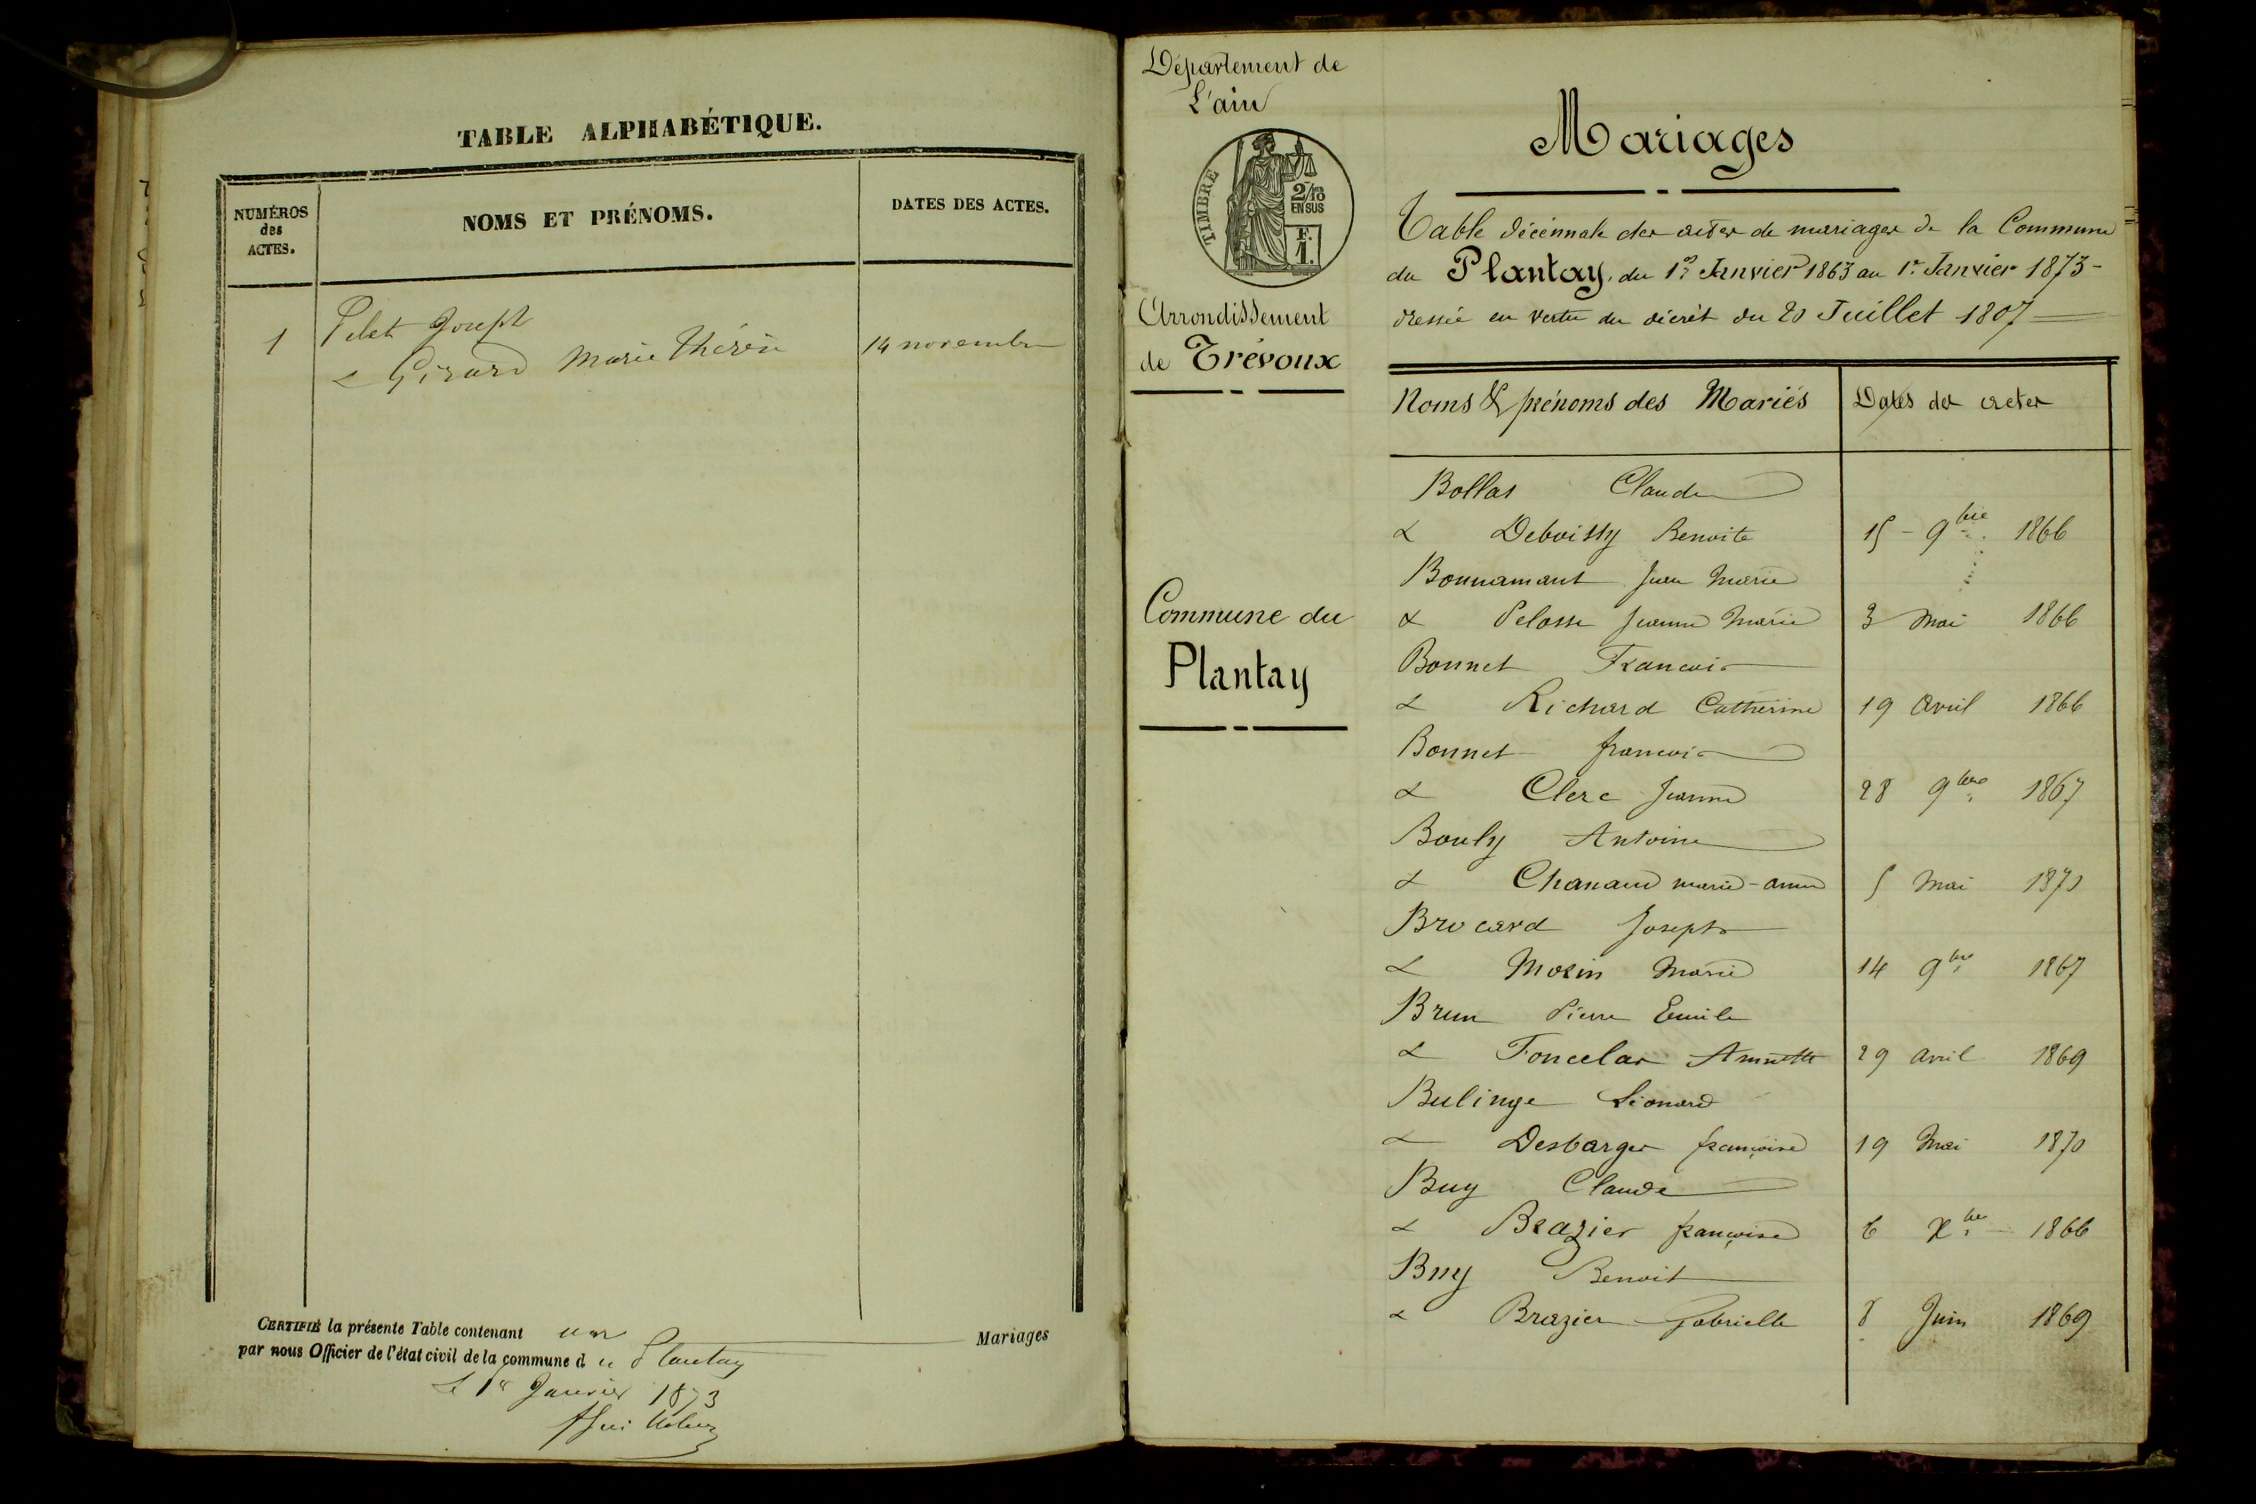 TABLE ALPHABÉTIQUE.
NUMÉROS des ACTES.
NOMS ET PRÉNOMS.
DATES DES ACTES.
1 Joseph
& Girard Marie Thérèse 14 novembre
CERTIFIÉ la présente Table contenant un Mariages
par nous Officier de l'état civil de la commune du Plantay
le 1er Janvier 1873
Département de
L'ain
TIMBRE
2/10 EN SUS
F. 1.
Arrondissement
de Trévoux
Commune du
Plantay
Mariages
Table décennale des actes de mariages de la Commune
du Plantay, du 1er Janvier 1863 au 1er Janvier 1873-
dressée en vertu du décrèt du 20 Juillet 1807
Noms & prénoms des Mariés Dates des actes
Bollas Claude
& Deboissy Benoite 15 - 9bre 1866
Bonnamant Jean Marie
& Pelosse Jeanne Marie 3 Mai 1866
Bonnet Francois
& Richard Catherine 19 Avril 1866
Bonnet francois
& Clerc Jeanne 28 9bre 1867
Bouly Antoine
& Chanaud marie-anne 5 Mai 1870
Brocard Joseph
& Morin Marie 14 9bre 1867
Brun Pierre Emile
& Foncelas Annette 29 avril 1869
Bulinge Léonard
& Desbarges françoise 19 Mai 1870
Buy Claude
& Brazier françoise 6 Xbre 1866
Buy Benoit
& Brazier Gabrielle 8 Juin 1869